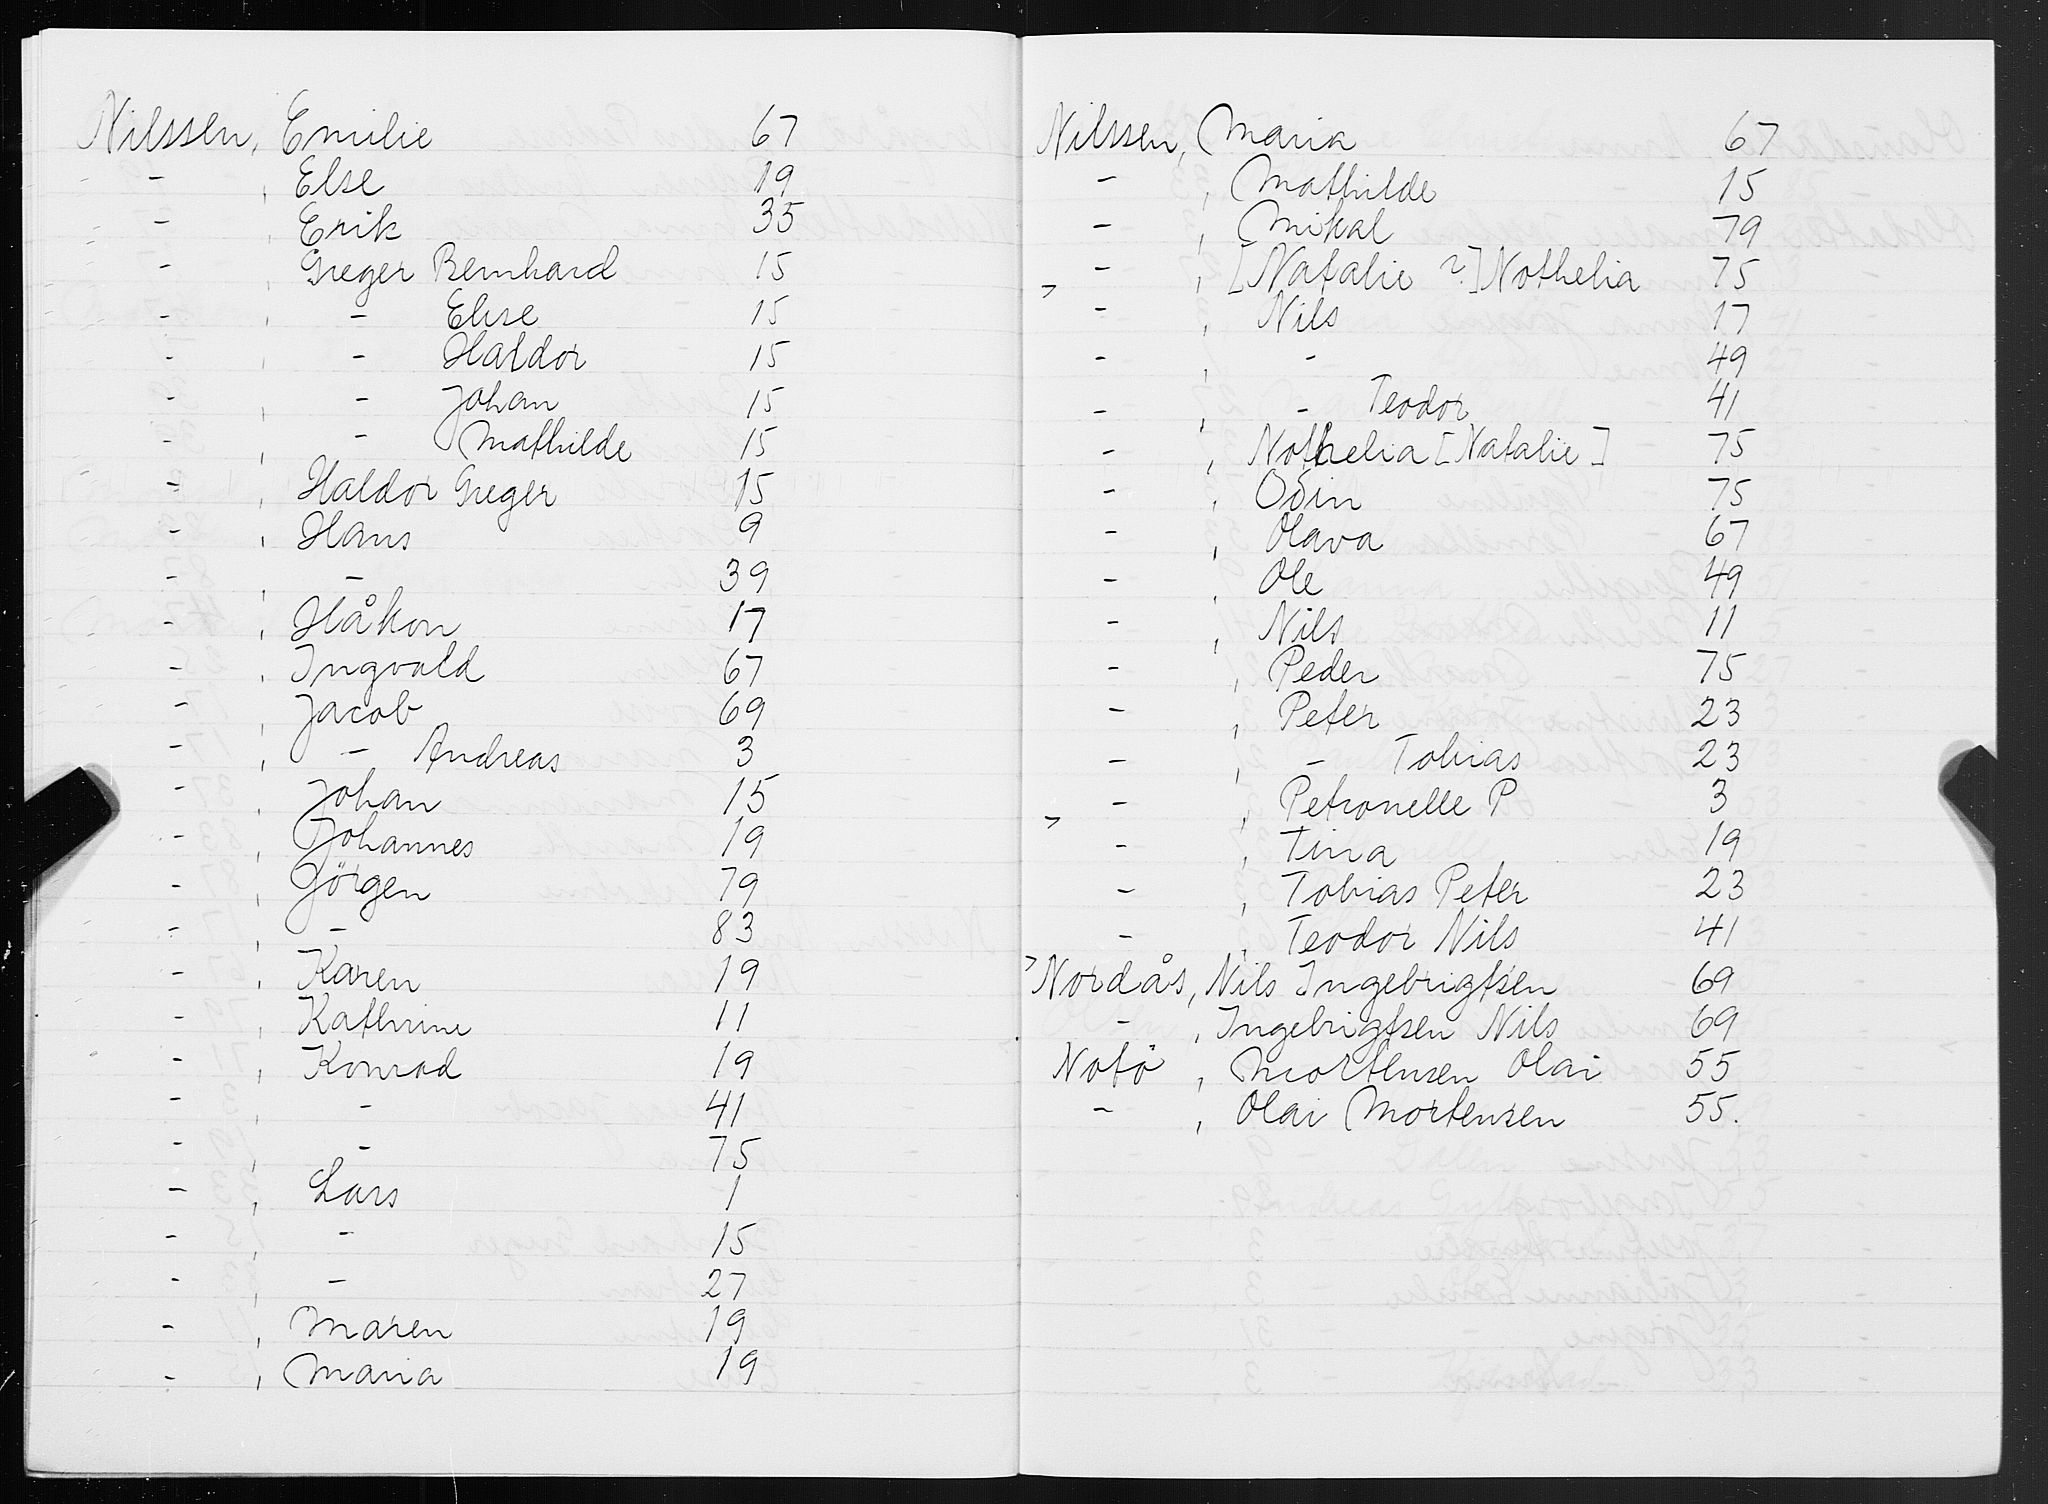 Nilssen, Emilie 67
- , Else 19
- , Erik 35
- , Greger Bernhard 15
- , - Elise 15
- , - Haldor 15
- , - Johan 15
- , - Mathilde 15
- , Haldor Greger 15
- , Hans 9
- , - 39
- , Håkon 17
- , Ingvald 67
- , Jacob 69
- , - Andreas 3
- , Johan 15
- , Johannes 19
- , Jörgen 79
- , - 83
- , Karen 19
- , Kathrine 11
- , Konrad 19
- , - 41
- , - 75
- , Lars 1
- , - 15
- , - 27
- , Maren 19
- , Maria 19
Nilssen, Maria 67
- , Mathilde 15
- , Mikal 79
- , [Natalie ?] Nothelia 75
> - , Nils 17
- , - 49
- , - Teodor 41
- , Nothelia [Natalie] 75
- , Odin 75
- , Olava 67
- , Ole 49
- , Nils 11
- , Peder 75
- , Peter 23
- , - Tobias 23
- , Petronelle P 3
> - , Tina 19
- , Tobias Peter 23
- , Teodor Nils 41
> Nordås, Nils Ingebrigtsen 69
- , Ingebrigtsen Nils 69
Notö , Mortensen Olai 55
- , Olai Mortensen 55.